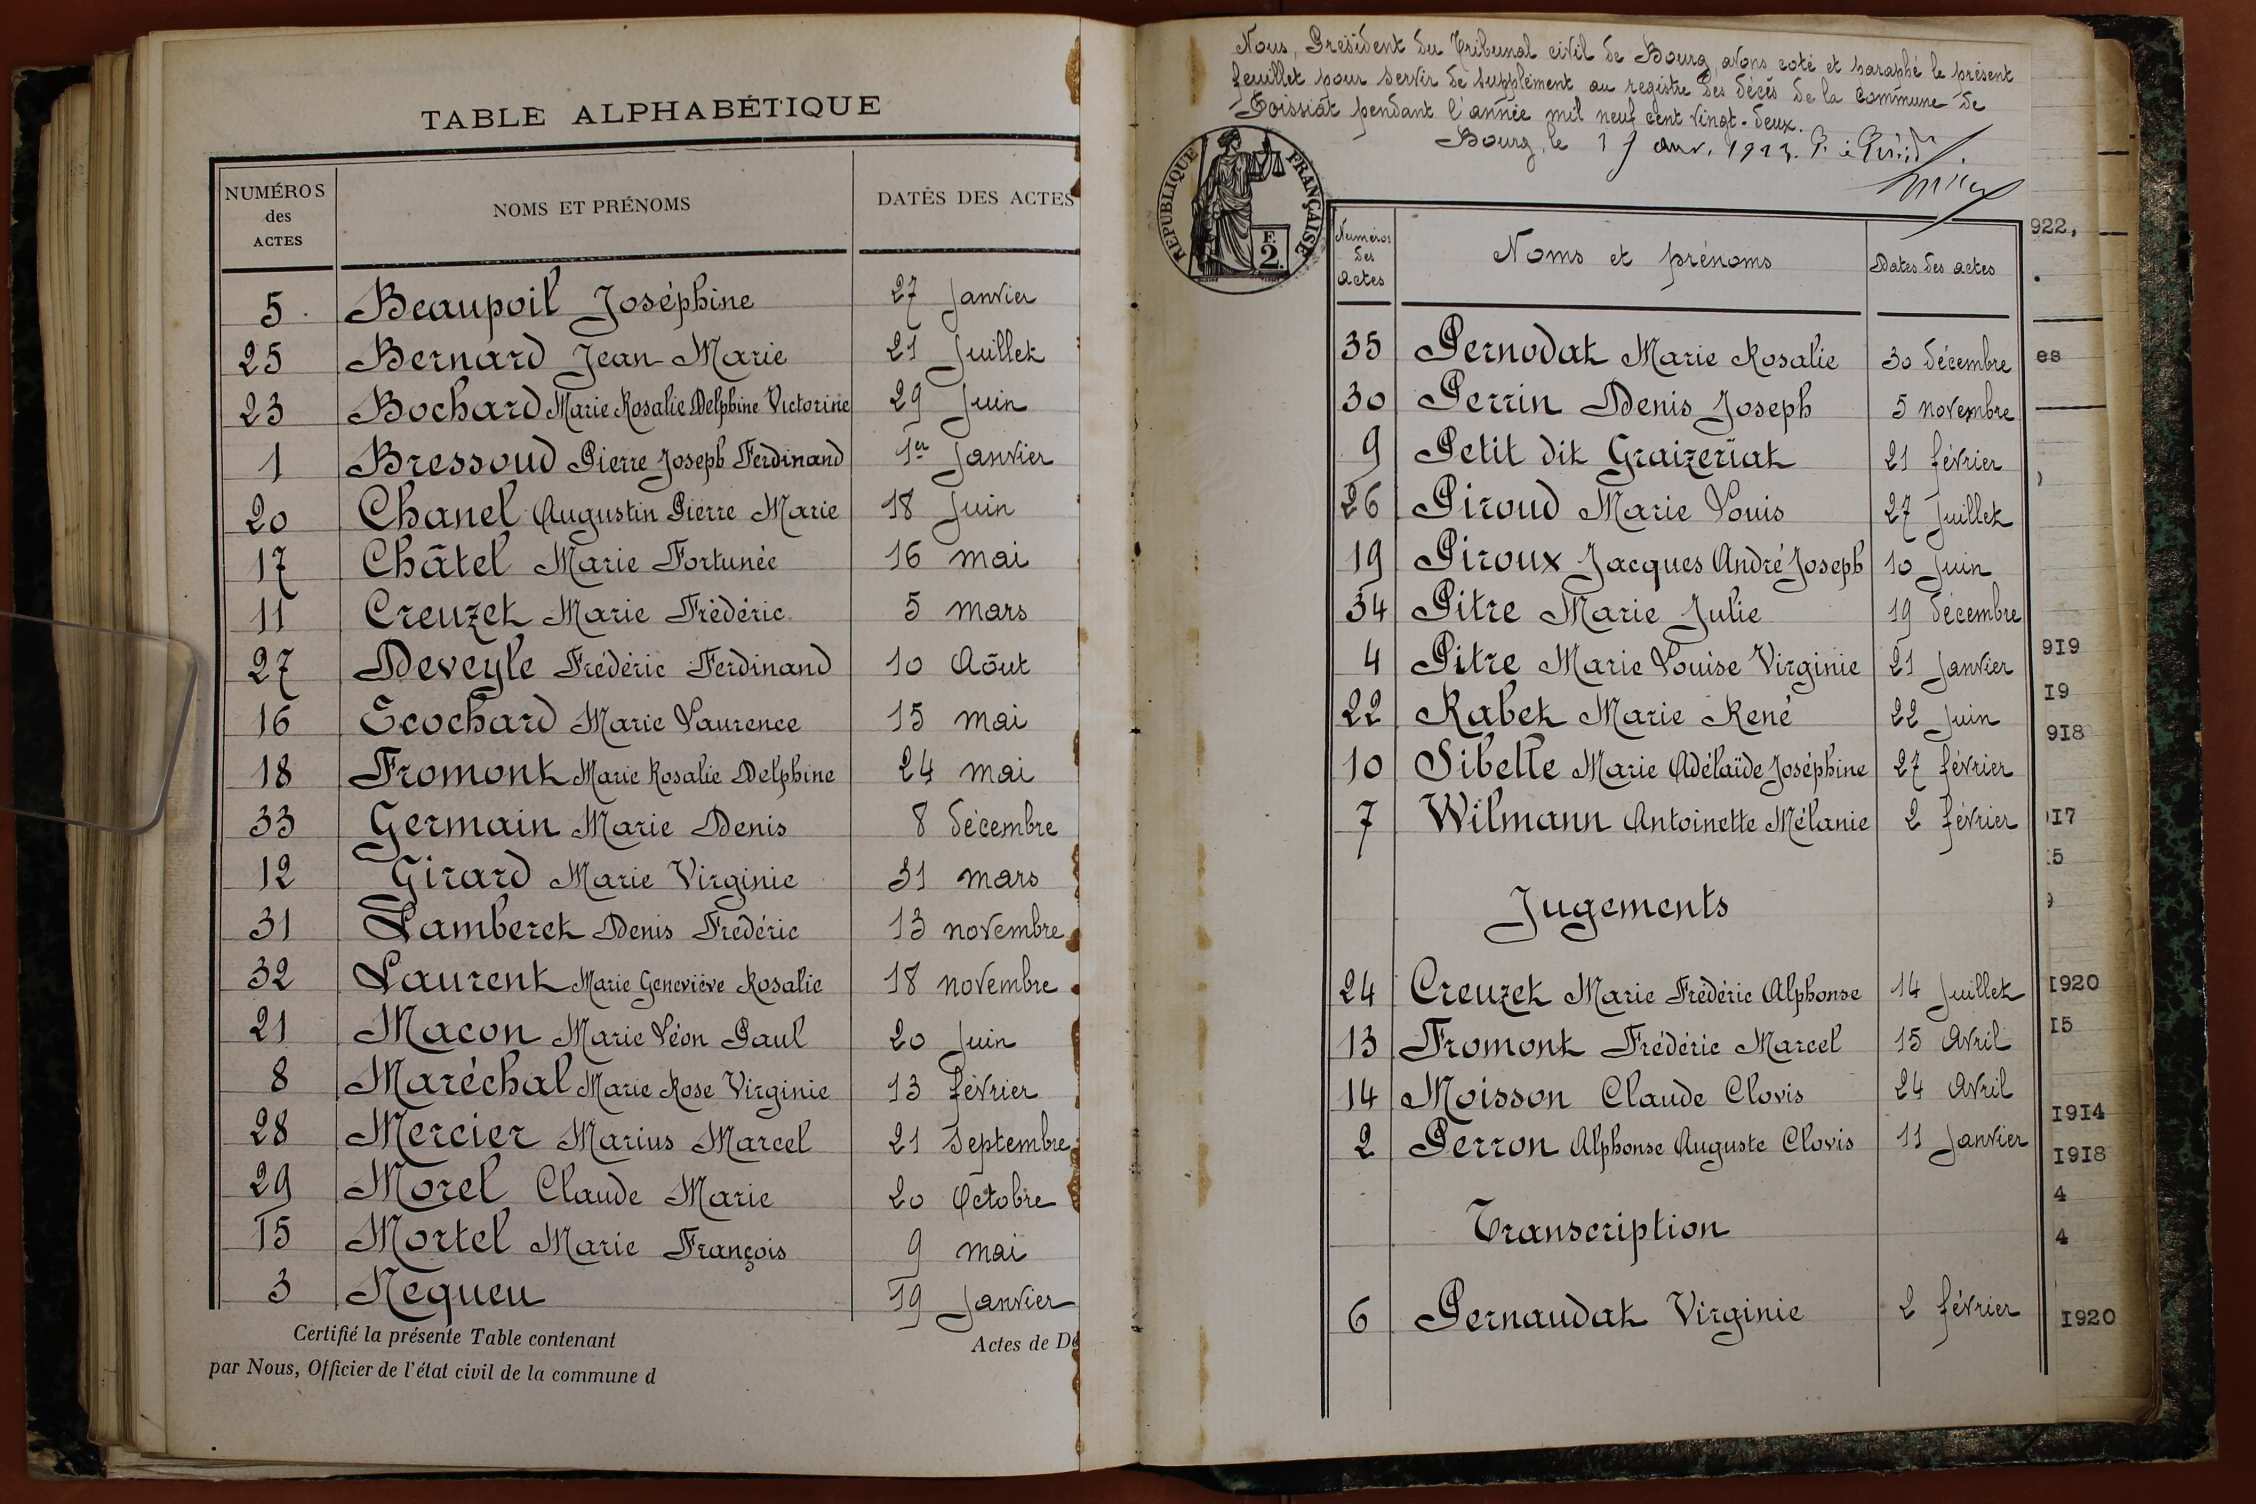 TABLE ALPHABÉTIQUE
NUMÉROS des ACTES NOMS ET PRÉNOMS DATES DES ACTES
5 Beaupoil Joséphine 27 Janvier
25 Bernard Jean-Marie 21 Juillet
23 Bochard Marie Rosalie Delphine Victorine 29 Juin
1 Bressoud Pierre Joseph Ferdinand 1er Janvier
20 Chanel Augustin Pierre Marie 18 Juin
17 Châtel Marie Fortunée 16 mai
11 Creuzet Marie Frédéric 5 mars
27 Deveyle Frédéric Ferdinand 10 Aôut
16 Ecochard Marie Laurence 15 mai
18 Fromont Marie Rosalie Delphine 24 mai
33 Germain Marie Denis 8 décembre
12 Girard Marie Virginie 31 mars
31 Lamberet Denis Frédéric 13 novembre
32 Laurent Marie Geneviève Rosalie 18 novembre
21 Macon Marie Léon Paul 20 Juin
8 Maréchal Marie Rose Virginie 13 février
28 Mercier Marius Marcel 21 Septembre
29 Morel Claude Marie 20 Octobre
15 Mortel Marie François 9 mai
3 Nequeu 19 Janvier
Certifié la présente Table contenant Actes de Dé
par Nous, Officier de l'état civil de la commune d
Nous, Président du Tribunal civil de Bourg, avons coté et paraphé le présent
feuillet pour servir de supplément au registre des décès de la commune de
Foissiat pendant l'année mil neuf cent vingt-deux.
Bourg, le
RÉPUBLIQUE FRANÇAISE
F. 2.
Numéros des actes Noms et prénoms Dates des actes
35 Pernodat Marie Rosalie 30 décembre
30 Perrin Denis Joseph 5 novembre
9 Petit dit Graizeriat 21 février
26 Piroud Marie Louis 27 Juillet
19 Piroux Jacques André Joseph 10 Juin
34 Pitre Marie Julie 19 décembre
4 Pitre Marie Louise Virginie 21 Janvier
22 Rabet Marie René 22 Juin
10 Sibelle Marie Adélaïde Joséphine 27 février
7 Wilmann Antoinette Mélanie 2 février
Jugements
24 Creuzet Marie Frédéric Alphonse 14 Juillet
13 Fromont Frédéric Marcel 15 Avril
14 Moisson Claude Clovis 24 Avril
2 Perron Alphonse Auguste Clovis 11 Janvier
Transcription
6 Pernaudat Virginie 2 février
922,
es
919
19
918
17
15
1920
15
1914
1918
4
4
1920